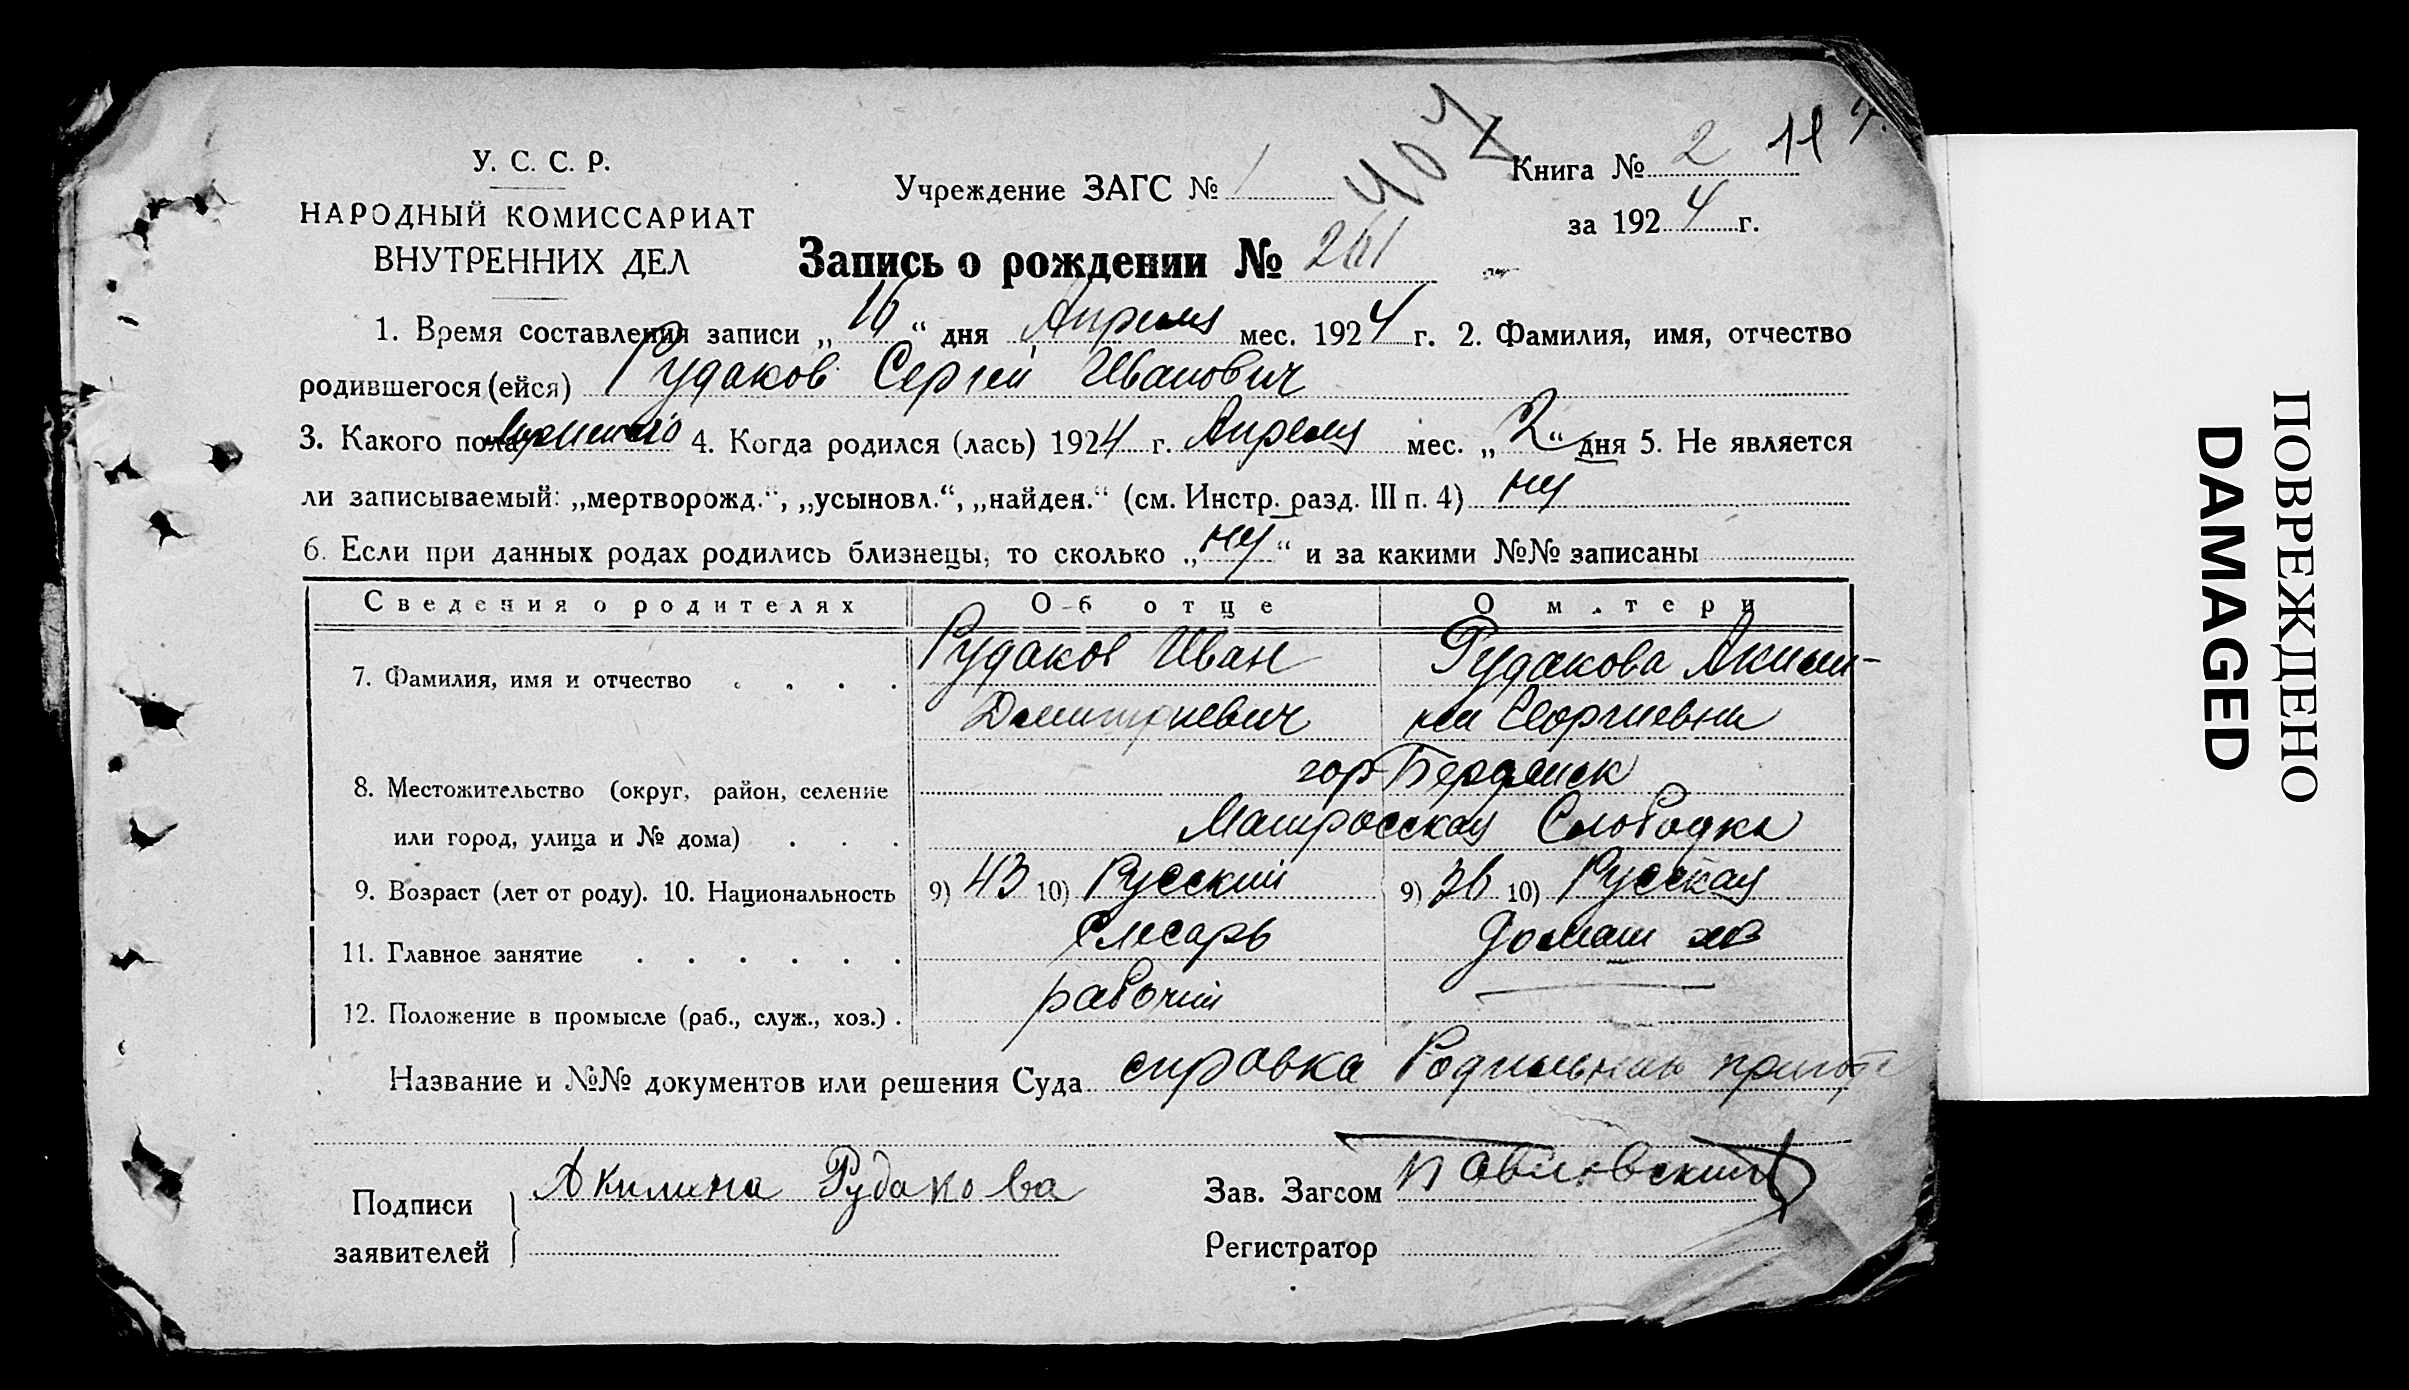 407
У. С. С. Р.
НАРОДНЫЙ КОМИССАРИАТ
ВНУТРЕННИХ ДЕЛ
Учреждение ЗАГС № 1
Книга № 2 11
за 1924 г.
Запись о рождении № 261
1. Время составления записи „16“ дня Апреля мес. 1924 г. 2. Фамилия, имя, отчество
родившегося (ейся) Рудаков Сергей Иванович
3. Какого пола мужского 4. Когда родился (лась) 1924 г. Апреля мес. „2“ дня 5. Не является
ли записываемый: „мертворожд.“, „усыновл.“, „найден.“ (см. Инстр. разд. III п. 4) нет
6. Если при данных родах родились близнецы, то сколько „нет“ и за какими №№ записаны
Сведения о родителях Об отце О матери
7. Фамилия, имя и отчество . . . . Рудаков Иван Рудакова Акили-
Димитриевич на Георгиевна
8. Местожительство (округ, район, селение гор Бердянск
или город, улица и № дома) . . . Матросская Слободка
9. Возраст (лет от роду). 10. Национальность 9) 43 10) Русский 9) 36 10) Русская
11. Главное занятие . . . . . . Слесарь домаш хоз
12. Положение в промысле (раб., служ., хоз.) . рабочий —
Название и №№ документов или решения Суда справка Родильного приюта
Подписи заявителей Акилина Рудакова
Зав. Загсом Павловский
Регистратор
ПОВРЕЖДЕНО
DAMAGED